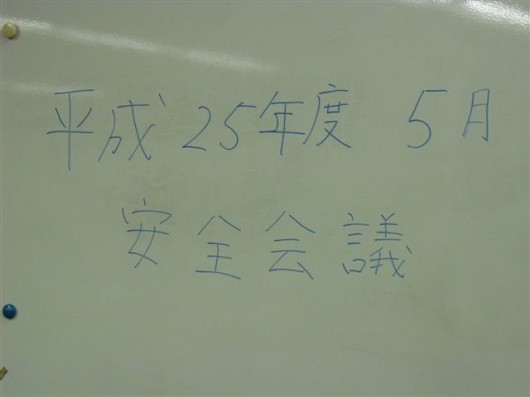 平成25年度 5月
安全会議